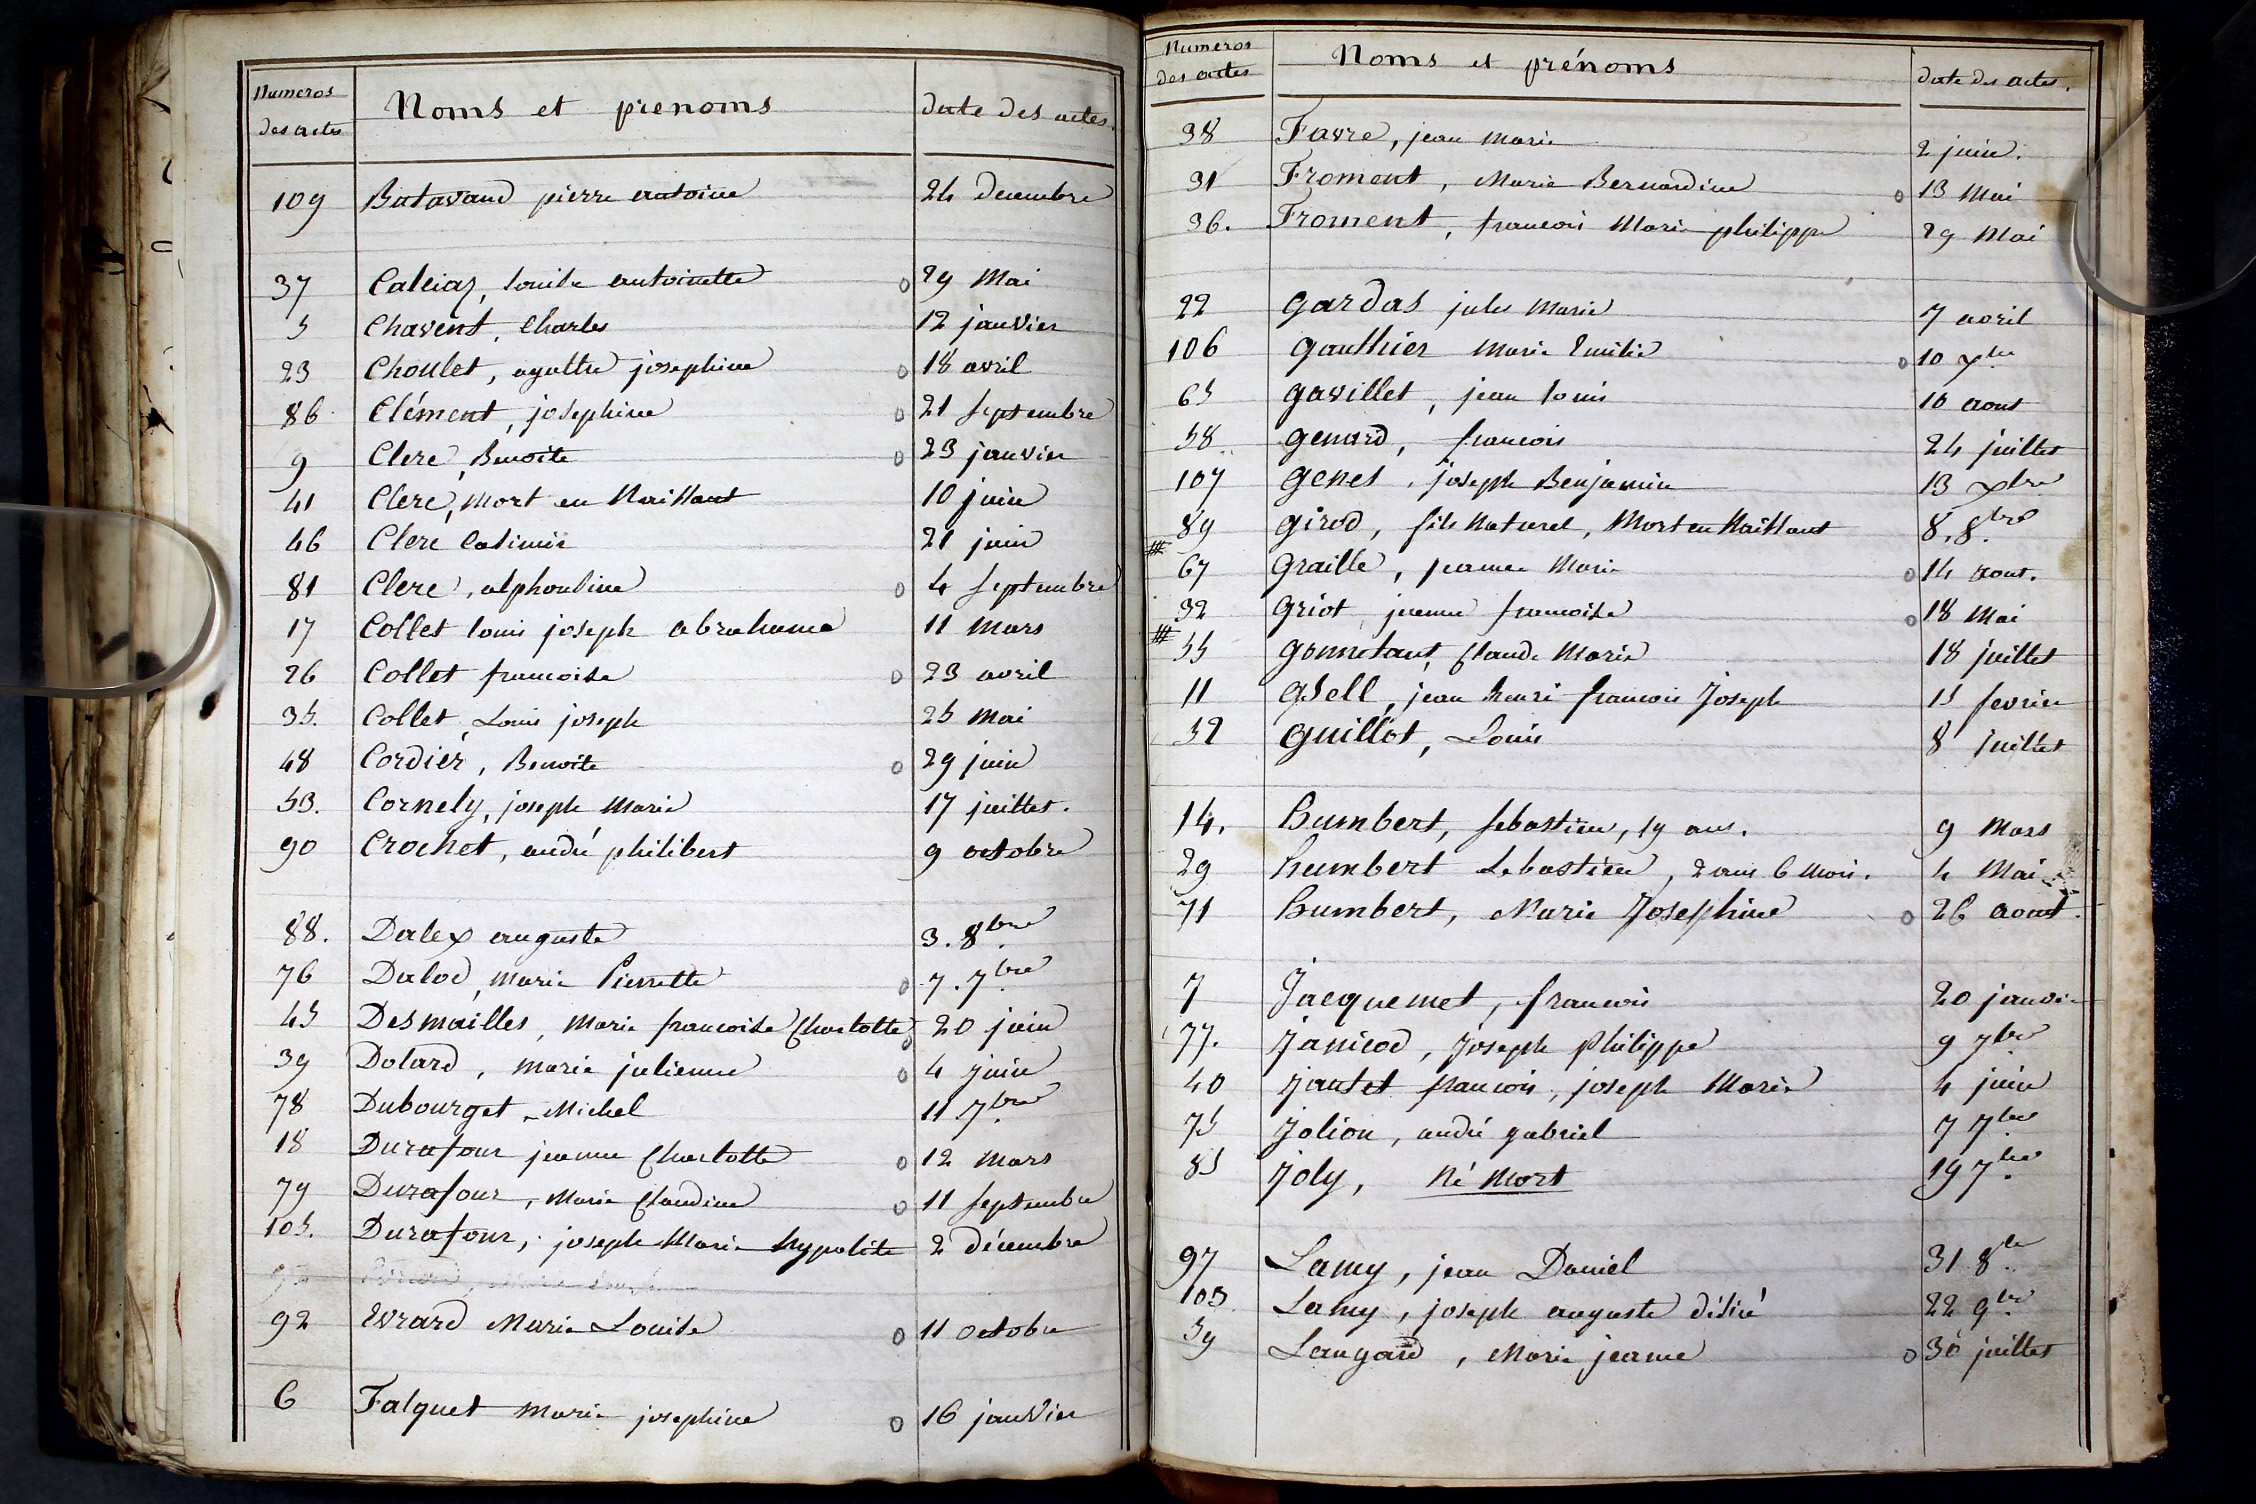 Numeros des actes Noms et prenoms date des actes.
109 Batavand pierre antoine 24 Decembre
37 Calliaz, louise antoinette o 29 Mai
5 Chavent, Charles 12 janvier
23 Choulet, agathe josephine o 18 avril
86 Clément, josephine o 21 septembre
9 Clerc, Benoite o 23 janvier
41 Clerc, mort en Naissant 10 juin
46 Clerc Casimir 21 juin
81 Clerc, alphonsine o 4 septembre
17 Collet louis joseph abrahame 11 Mars
26 Collet francoise o 23 avril
35. Collet, Louis joseph 25 mai
48 Cordier, Benoite o 29 juin
53. Cornely, joseph Marie 17 juillet.
90 Crochet, andré philibert 9 octobre
88. Dalex auguste 3. 8bre
76 Dalod, marie Pierrette o 7. 7bre
45 Desmailles, Marie francoise Charlotte o 20 juin
39 Dolard, marie julienne o 4 juin
78 Dubourget, Michel 11 7bre
18 Durafour jeanne Charlotte o 12 mars
79 Durafour, Marie Claudine o 11 septembre
105. Durafour, joseph Marie hypolite 2 décembre
92 Evrard Marie Louise o 11 octobre
6 Falquet marie josephine o 16 janvier
Numeros des actes Noms et prénoms date des actes.
38 Favre, jean Marie 2 juin.
31 Froment, Marie Bernardine o 13 Mai
36. Froment, francois Marie philippe 29 Mai
22 Gardas jules Marie 7 avril
106 Gauthier Marie Emilie o 10 xbre
65 Gavillet, jean louis 10 aout
58 Genard, francois 24 juillet
107 Genet, joseph Benjamin 13 xbre
89 Girod, fils Naturel, Mort en Naissant 8. 8bre
67 Graille, jeanne Marie o 14 aout.
32 Griot, jeanne francoise o 18 Mai
55 Gonnetant, Claude Marie 18 juillet
11 Gsell, jean henri francois Joseph 15 fevrier
52 Guillot, Louis 8 juillet
14. humbert, sebastien, 59 ans. 9 Mars
29 humbert sebastien, 2 ans 6 Mois. 4 Mai
71 humbert, Marie Josephine o 26 aout.
7 Jacquemet, francois 20 janvier
77. Janicod, Joseph Philippe 9 7bre
40 Jantet francois, joseph Marie 4 juin
75 Jolion, andré gabriel 7 7bre
85 Joly, Né Mort 19 7bre
97 Lamy, jean Daniel 31 8bre
103 Lamy, joseph auguste désiré 22 9bre
59 Laugard, Marie jeanne o 30 juillet